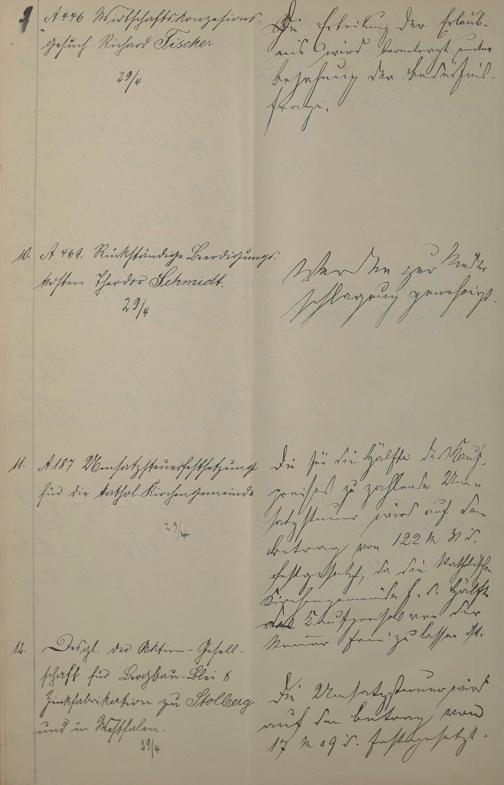 9
A 446 Wirtschaftskonzesions-
gesuch Richard Fischer
29/4
Die Erteilung der Erlaub-
nis wird beantragt unter
Bejahung der Bedürfnis-
frage.
10. A 469. Rückständige Beerdigungs-
kosten Theodor Schmidt.
29/4
Werden zur Nieder-
schlagung genehmigt.
11. A 187 Umsatzsteuerfestsetzung
für die kathol. Kirchengemeinde
29/4
Die für die Hälfte des Kauf-
preises zu zahlende Um-
satzsteuer wird auf den
Betrag von 122 M 31 d.
festgesetzt, da die Katholische
Kirchengemeinde f. d. Hälfte
Kaufpreises von der
Steuer frei zu lassen ist.
12. Desgl. der Aktien-Gesell-
schaft für Bergbau-Blei &
Zinkfabrikation zu Stolberg
und in Westfalen.
29/4
Die Umsatzsteuer wird
auf den Betrag von
17 M 09 d. festgesetzt.